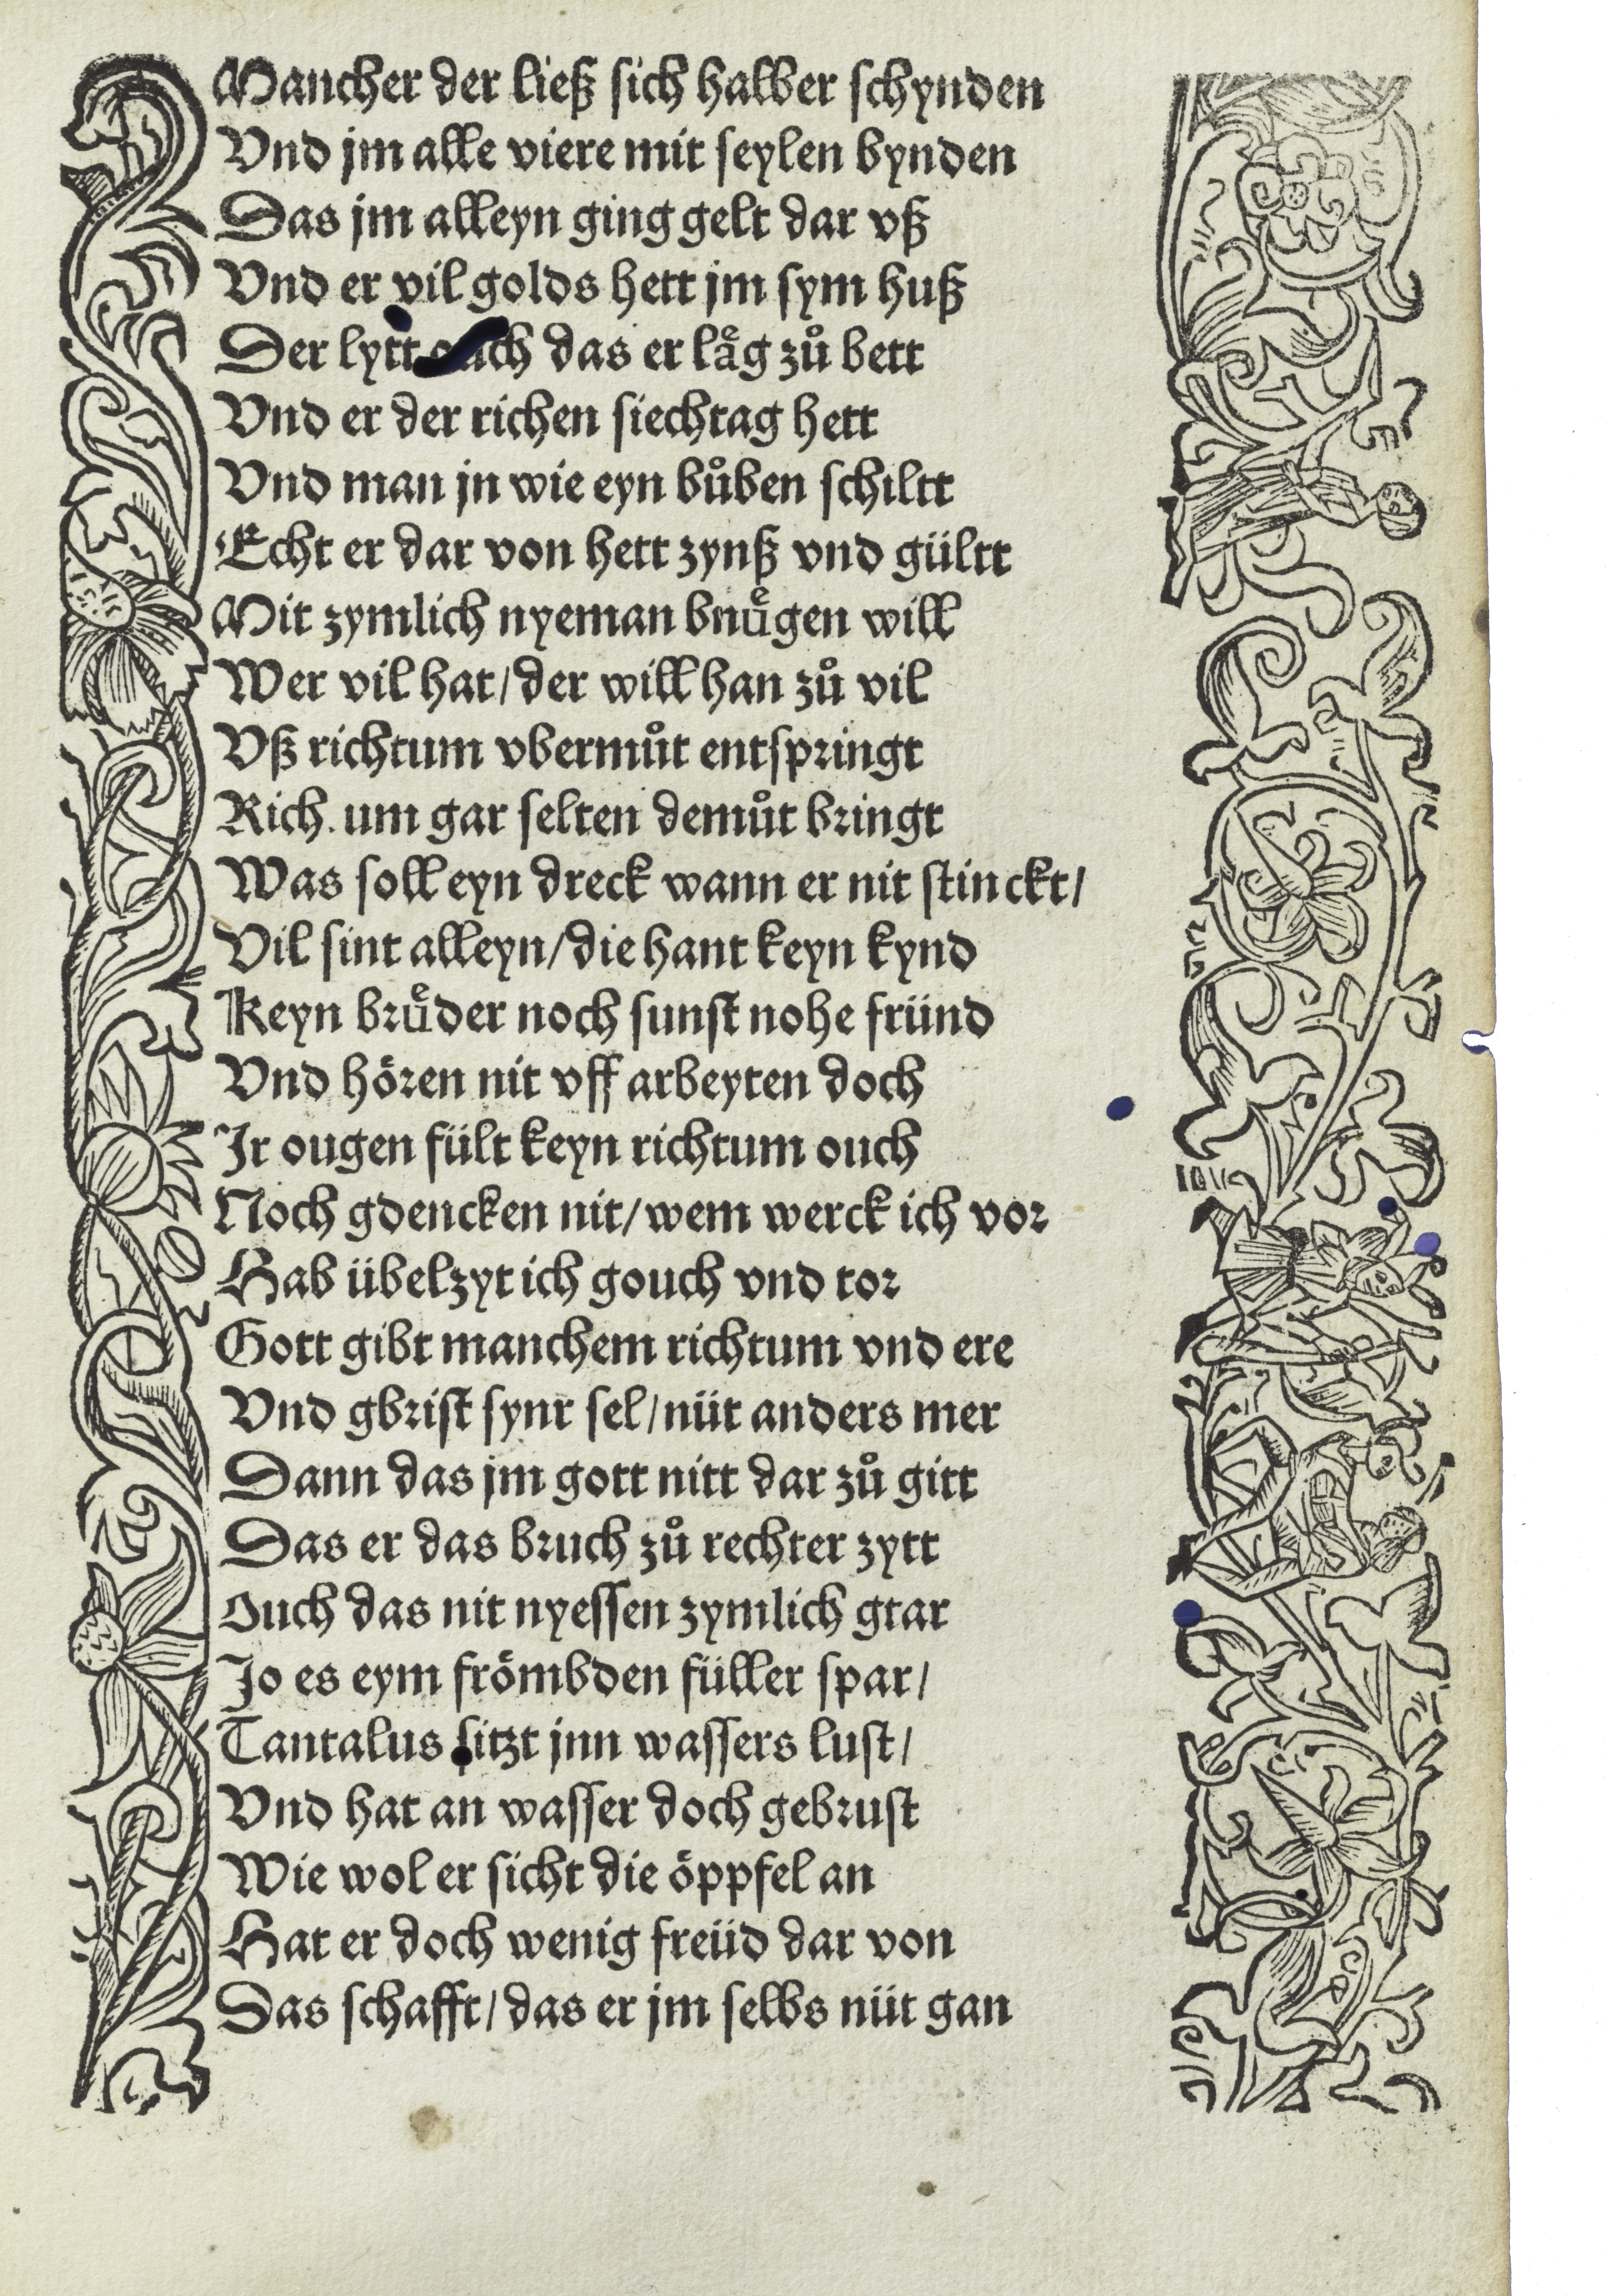 Mancher der ließ sich halber schynden
Vnd jm alle viere mit seylen bynden
Das jm alleyn ging gelt dar vß
Vnd er vil golds hett jm sym huß
Der lytt ouch das er laͤg zuͦ bett
Vnd er der richen siechtag hett
Vnd man jn wie eyn buͦben schiltt
Echt er dar von hett zynß vnd gültt
Mit zymlich nyeman bnuͤgen will
Wer vil hat/ der will han zuͦ vil
Vß richtum vbermuͦt entspringt
Rich.um gar selten demuͦt bringt
Was soll eyn dreck wann er nit stinckt/
Vil sint alleyn/ die hant keyn kynd
Keyn bruͤder noch sunst nohe fründ
Vnd hören nit vff arbeyten doch
Jr ougen fült keyn richtum ouch
Noch gdencken nit/ wem werck ich vor
Hab übelzyt ich gouch vnd tor
Gott gibt manchem richtum vnd ere
Vnd gbrist synr sel/ nüt anders mer
Dann das jm gott nitt dar zuͦ gitt
Das er das bruch zuͦ rechter zytt
Ouch das nit nyessen zymlich gtar
Jo es eym frömbden füller spar/
Tantalus sitzt jnn wassers lust/
Vnd hat an wasser doch gebrust
Wie wol er sicht die öppfel an
Hat er doch wenig freüd dar von
Das schafft/ das er jm selbs nüt gan